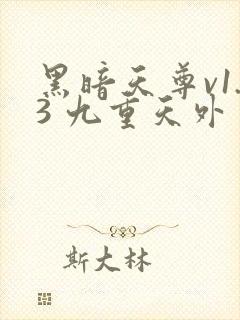 黑暗天尊v1.
3 九重天外
斯大林